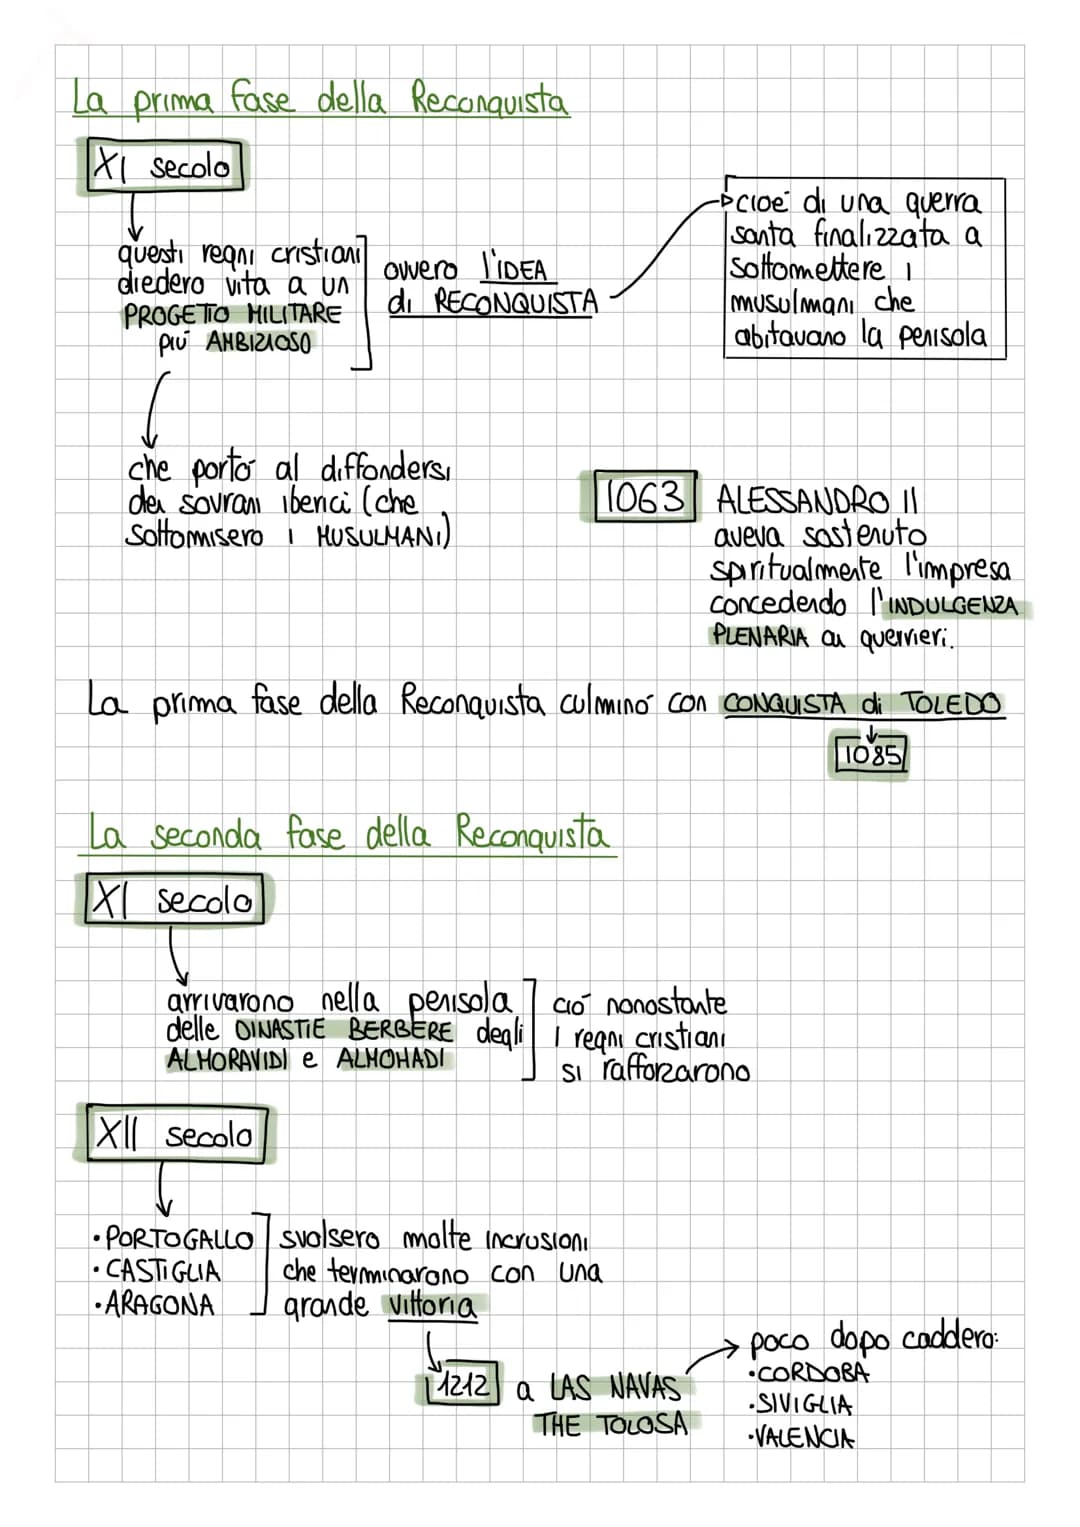 La prima fase della Reconquista
XI secolo
questi regni cristiani
diedero vita a un
PROGETTO MILITARE
più AMBIZIOSO
ovvero l'IDEA
di RECONQUISTA
cioè di una guerra
santa finalizzata a
sottomettere i
musulmani che
abitavano la penisola
che portò al diffondersi
dei sovrani iberici (che
sottomisero i MUSULMANI)
1063
ALESSANDRO II
aveva sostenuto
spiritualmente l'impresa
concedendo l'INDULGENZA
PLENARIA ai guerrieri.
La prima fase della Reconquista culminò con CONQUISTA di TOLEDO
1085
La seconda fase della Reconquista
XI secolo
arrivarono nella penisola
delle DINASTIE BERBERE degli
ALMORAVIDI e ALMOHADI
ciò nonostante
i regni cristiani
si rafforzarono
XII secolo
•PORTOGALLO
•CASTIGLIA
•ARAGONA
svolsero molte incrusioni
che terminarono con una
grande vittoria
1212 a LAS NAVAS
THE TOLOSA
poco dopo caddero:
•CORDOBA
•SIVIGLIA
•VALENCIA